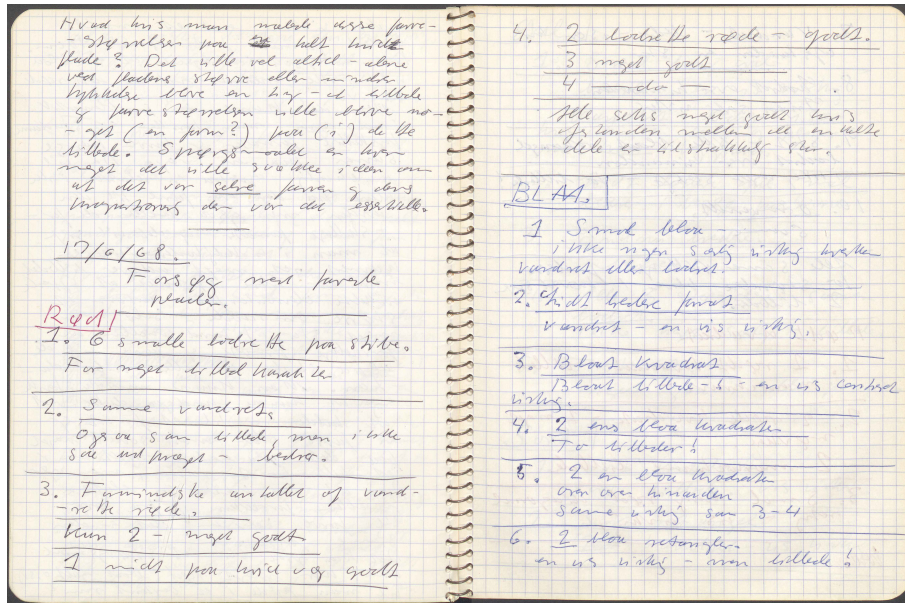 Hvad hvis man malede disse farve-
-størrelsen paa helt hvid
flade? Det ville vel altid - alene
ved fladens større eller mindre
tykkelse blive en ting - et billede
og farvestørrelsen ville blive no-
-get (en form?) paa (i) dette
billede. Spørgsmaalet er hvor
meget det ville svække ideen om
at det var selve farven og dens
den var det essentielle.
17/6/68.
Forsøg med farvede
plader.
Rød!
1. 6 smalle lodrette paa stribe.
For meget billedkarakter
2. Samme vandret.
Ogsaa som billede, men ikke
saa udpræget - bedre.
3. Formindske antallet af vand-
-rette røde.
Kun 2 - meget godt
1 midt paa hvid væg godt
4. 2 lodrette røde - godt.
3 meget godt
4 — do —
Alle seks meget godt hvis
afstanden mellem de enkelte
dele er tilstrækkelig stor.
BLAA.
1 Smal blaa -
ikke nogen særlig virkning hverken
vandret eller lodret.
2. Lidt bredere format
vandret - en vis virkning.
3. Blaat kvadrat
Blaat billede - en vis
virkning.
4. 2 ens blaa kvadrater
To billeder!
5. 2 ens blaa kvadrater
over hinanden
samme virkning som 3-4
6. 2 blaa rektangler.
en vis virkning - men billede!